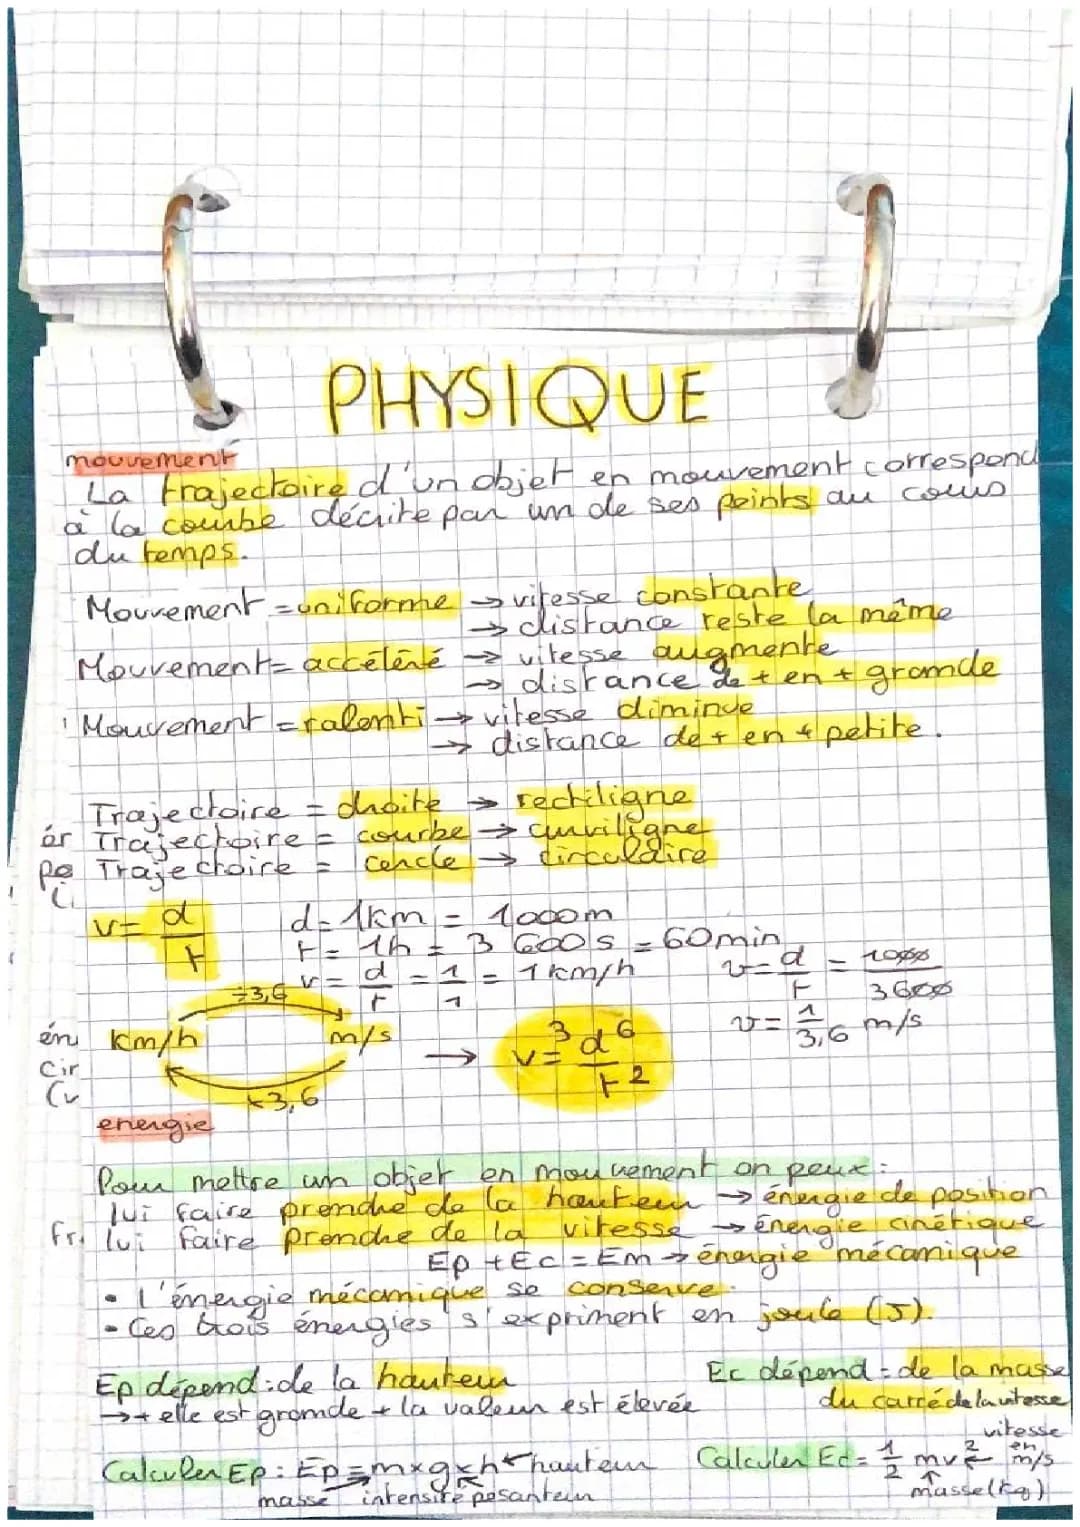 PHYSIQUE
mouvement
La trajectoire d'un objet en mouvement correspond
à la courbe décrite par un de ses points au cours
du temps.
Mouvement = uniforme → vitesse constante
→ distance reste la même
Mouvement = accéléré → vitesse augmente
→ distance de + en + grande
Mouvement = ralenti → vitesse diminue
→ distance de + en + petite.
Trajectoire = droite → rectiligne
Trajectoire = courbe → curviligne
Trajectoire = cercle → circulaire
v = d/t
d = 1km = 1000m
t = 1h = 3 600s = 60min
v = d/t = 1/1 = 1 km/h
v = d/t = 1000/3600
v = 1/3,6 m/s
÷3,6
km/h m/s → v = 3 d 6 / t 2
×3,6
energie
Pour mettre un objet en mouvement on peux :
lui faire prendre de la hauteur → énergie de position
lui faire prendre de la vitesse → énergie cinétique
Ep + Ec = Em → énergie mécanique
• l'énergie mécanique se conserve.
• Ces trois énergies s'expriment en joule (J).
Ep dépend : de la hauteur
→ + elle est grande + la valeur est élevée
Ec dépend = de la masse
du carré de la vitesse
Calculer Ep : Ep = m×g×h ← hauteur
masse intensité pesanteur
Calculer Ec = 1/2 mv² ← vitesse en m/s
masse (kg)